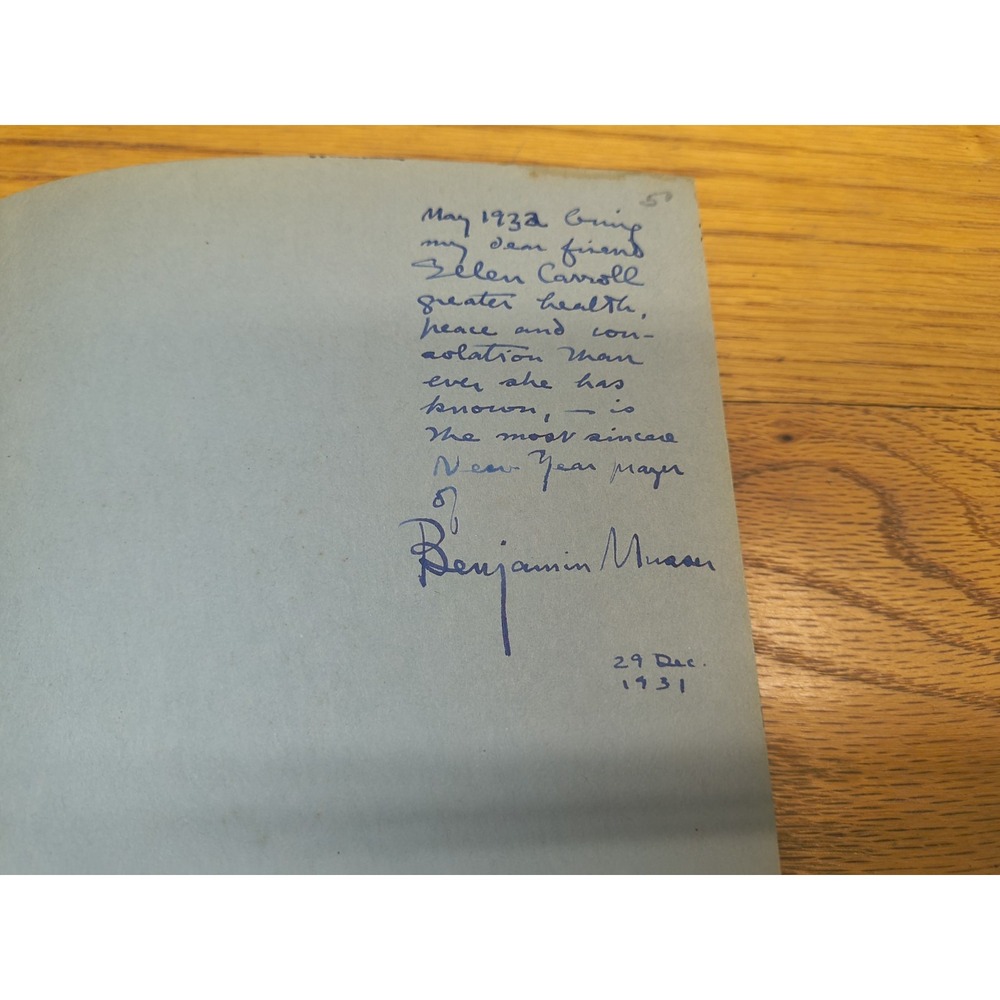 50
May 1932 bring
my dear friend
Ellen Carroll
greater health,
peace and con-
solation than
ever she has
known, — is
the most sincere
New Year prayer
of
Benjamin Musser
29 Dec.
1931